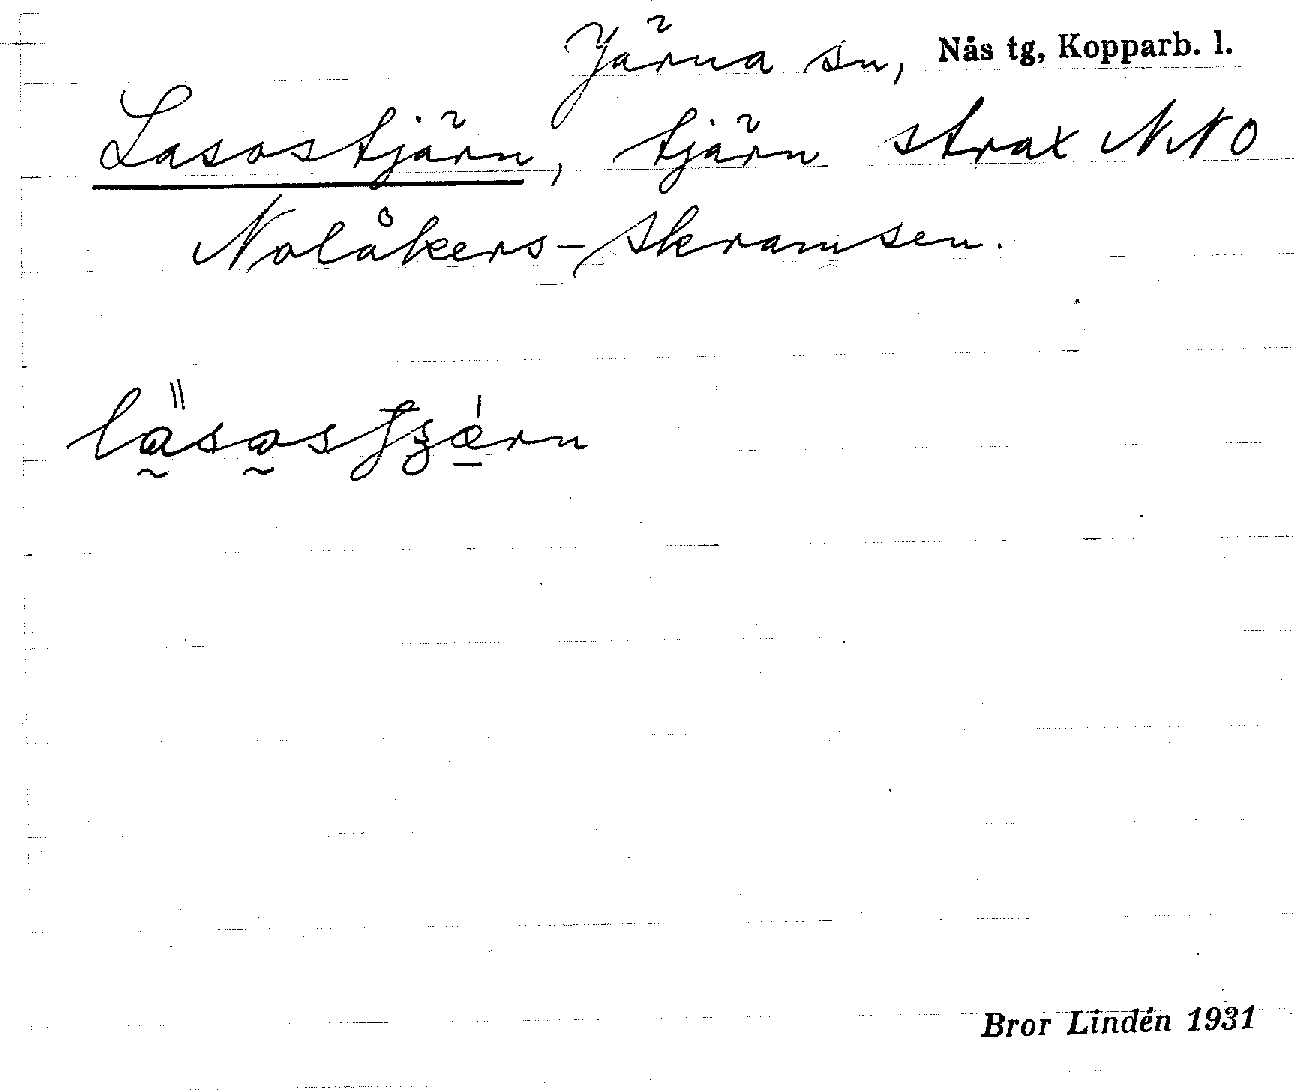 Järna sn, Nås tg, Kopparb. l.
Lasostjärn, tjärn strax NNO
Nolåkers-Skramsen.
Bror Lindén 1931